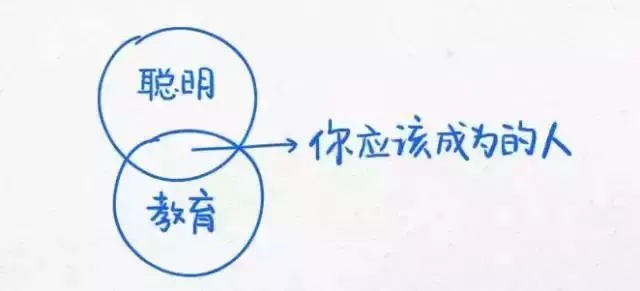 聪明
你应该成为的人
教育